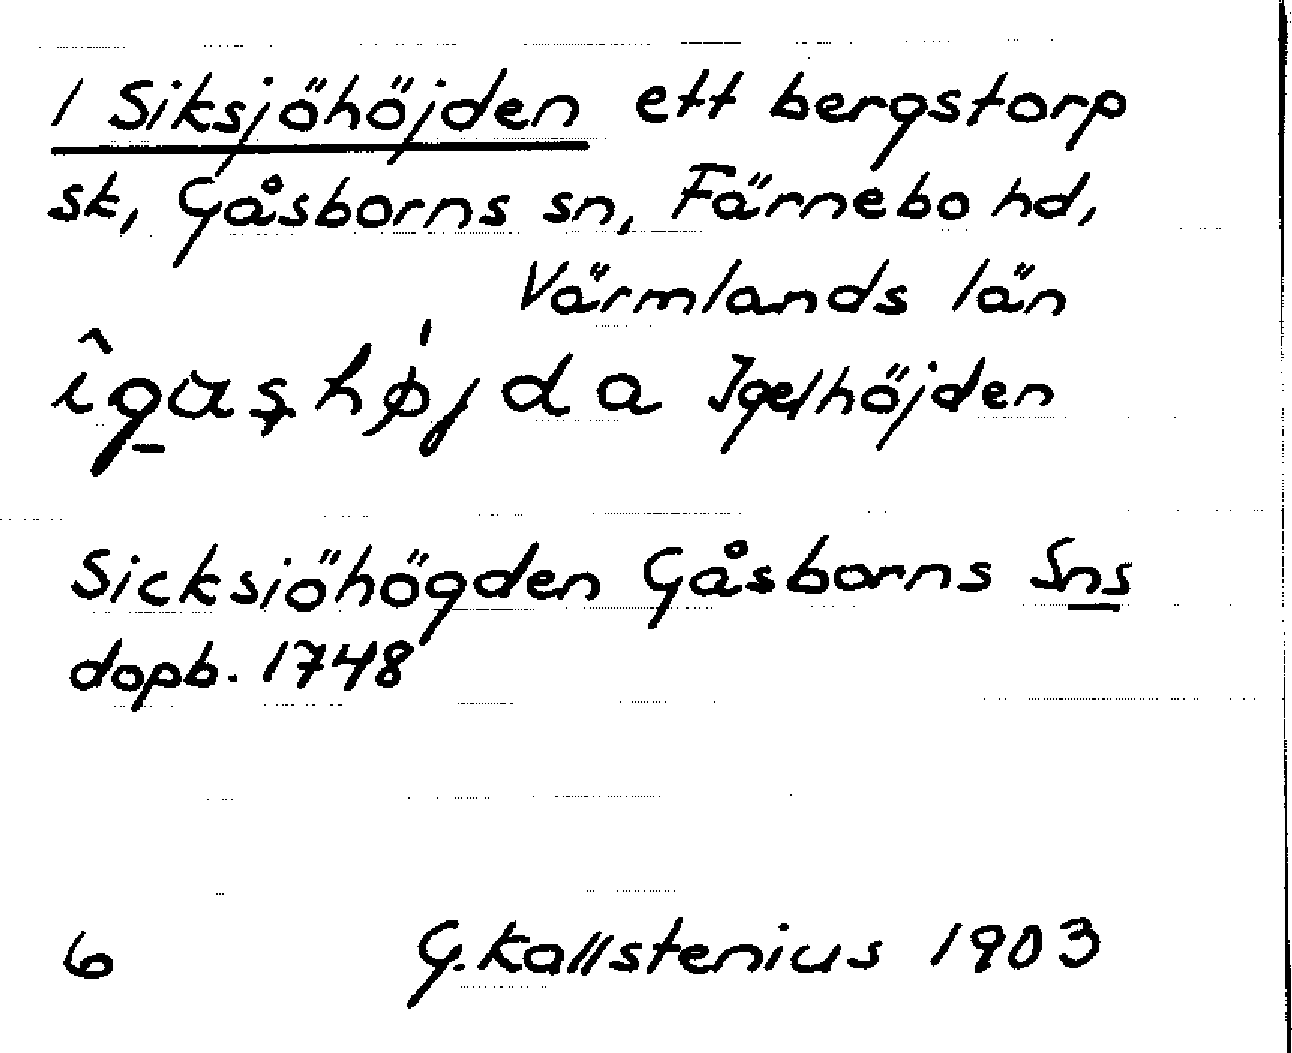 1 Siksjöhöjden ett bergstorp
sk, Gåsborns sn, Färnebo hd,
Värmlands län
Igelhöjden
Sicksiöhögden Gåsborns Sns
dopb. 1748
6 G. Kallstenius 1903